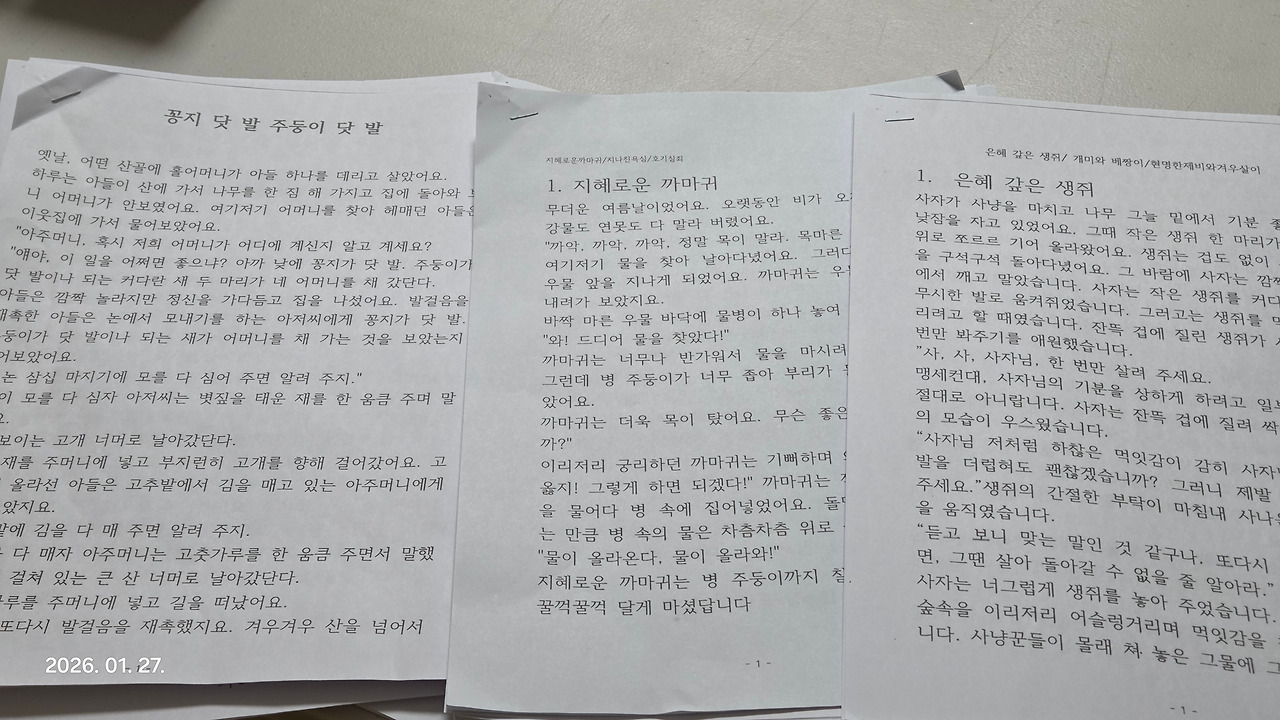 꽁지 닷 발 주둥이 닷 발
옛날, 어떤 산골에 홀어머니가 아들 하나를 데리고 살았어요.
하루는 아들이 산에 가서 나무를 한 짐 해 가지고 집에 돌아와 보
니 어머니가 안보였어요. 여기저기 어머니를 찾아 헤매던 아들은
이웃집에 가서 물어보았어요.
"아주머니, 혹시 저희 어머니가 어디에 계신지 알고 계세요?
"얘야, 이 일을 어쩌면 좋으냐? 아까 낮에 꽁지가 닷 발. 주둥이가
닷 발이나 되는 커다란 새 두 마리가 네 어머니를 채 갔단다.
아들은 깜짝 놀라지만 정신을 가다듬고 집을 나섰어요. 발걸음을
재촉한 아들은 논에서 모내기를 하는 아저씨에게 꽁지가 닷 발.
둥이가 닷 발이나 되는 새가 어머니를 채 가는 것을 보았는지
어보았어요.
논 삼십 마지기에 모를 다 심어 주면 알려 주지."
이 모를 다 심자 아저씨는 볏짚을 태운 재를 한 움큼 주며 말
보이는 고개 너머로 날아갔단다.
재를 주머니에 넣고 부지런히 고개를 향해 걸어갔어요. 고
올라선 아들은 고추밭에서 김을 매고 있는 아주머니에게
았지요.
밭에 김을 다 매 주면 알려 주지.
다 매자 아주머니는 고춧가루를 한 움큼 주면서 말했
걸쳐 있는 큰 산 너머로 날아갔단다.
루를 주머니에 넣고 길을 떠났어요.
또다시 발걸음을 재촉했지요. 겨우겨우 산을 넘어서
2026. 01. 27.
지혜로운까마귀/지나친욕심/호기심죄
1. 지혜로운 까마귀
무더운 여름날이었어요. 오랫동안 비가 오
강물도 연못도 다 말라 버렸어요.
"까악, 까악, 까악, 정말 목이 말라. 목마른
여기저기 물을 찾아 날아다녔어요. 그러다
우물 앞을 지나게 되었어요. 까마귀는 우
내려가 보았지요.
바짝 마른 우물 바닥에 물병이 하나 놓여
"와! 드디어 물을 찾았다!"
까마귀는 너무나 반가워서 물을 마시려
그런데 병 주둥이가 너무 좁아 부리가
았어요.
까마귀는 더욱 목이 탔어요. 무슨 좋은
까?"
이리저리 궁리하던 까마귀는 기뻐하며
옳지! 그렇게 하면 되겠다!" 까마귀는
을 물어다 병 속에 집어넣었어요. 돌
는 만큼 병 속의 물은 차츰차츰 위로
"물이 올라온다, 물이 올라와!"
지혜로운 까마귀는 병 주둥이까지
꿀꺽꿀꺽 달게 마셨답니다
- 1 -
은혜 갚은 생쥐/ 개미와 베짱이/현명한제비와겨우살이
1. 은혜 갚은 생쥐
사자가 사냥을 마치고 나무 그늘 밑에서 기분
낮잠을 자고 있었어요. 그때 작은 생쥐 한 마리가
위로 쪼르르 기어 올라왔어요. 생쥐는 겁도 없이
을 구석구석 돌아다녔어요. 그 바람에 사자는 깜
에서 깨고 말았습니다. 사자는 작은 생쥐를 커다
무시한 발로 움켜쥐었습니다. 그러고는 생쥐를
리려고 할 때였습니다. 잔뜩 겁에 질린 생쥐가
번만 봐주기를 애원했습니다.
"사, 사, 사자님, 한 번만 살려 주세요.
맹세컨대, 사자님의 기분을 상하게 하려고 일
절대로 아니랍니다. 사자는 잔뜩 겁에 질려 싹
의 모습이 우스웠습니다.
"사자님 저처럼 하찮은 먹잇감이 감히 사자
발을 더럽혀도 괜찮겠습니까? 그러니 제발
주세요."생쥐의 간절한 부탁이 마침내 사나
을 움직였습니다.
"듣고 보니 맞는 말인 것 같구나. 또다시
면, 그땐 살아 돌아갈 수 없을 줄 알아라."
사자는 너그럽게 생쥐를 놓아 주었습니다.
숲속을 이리저리 어슬렁거리며 먹잇감을
니다. 사냥꾼들이 몰래 쳐 놓은 그물에
- 1 -